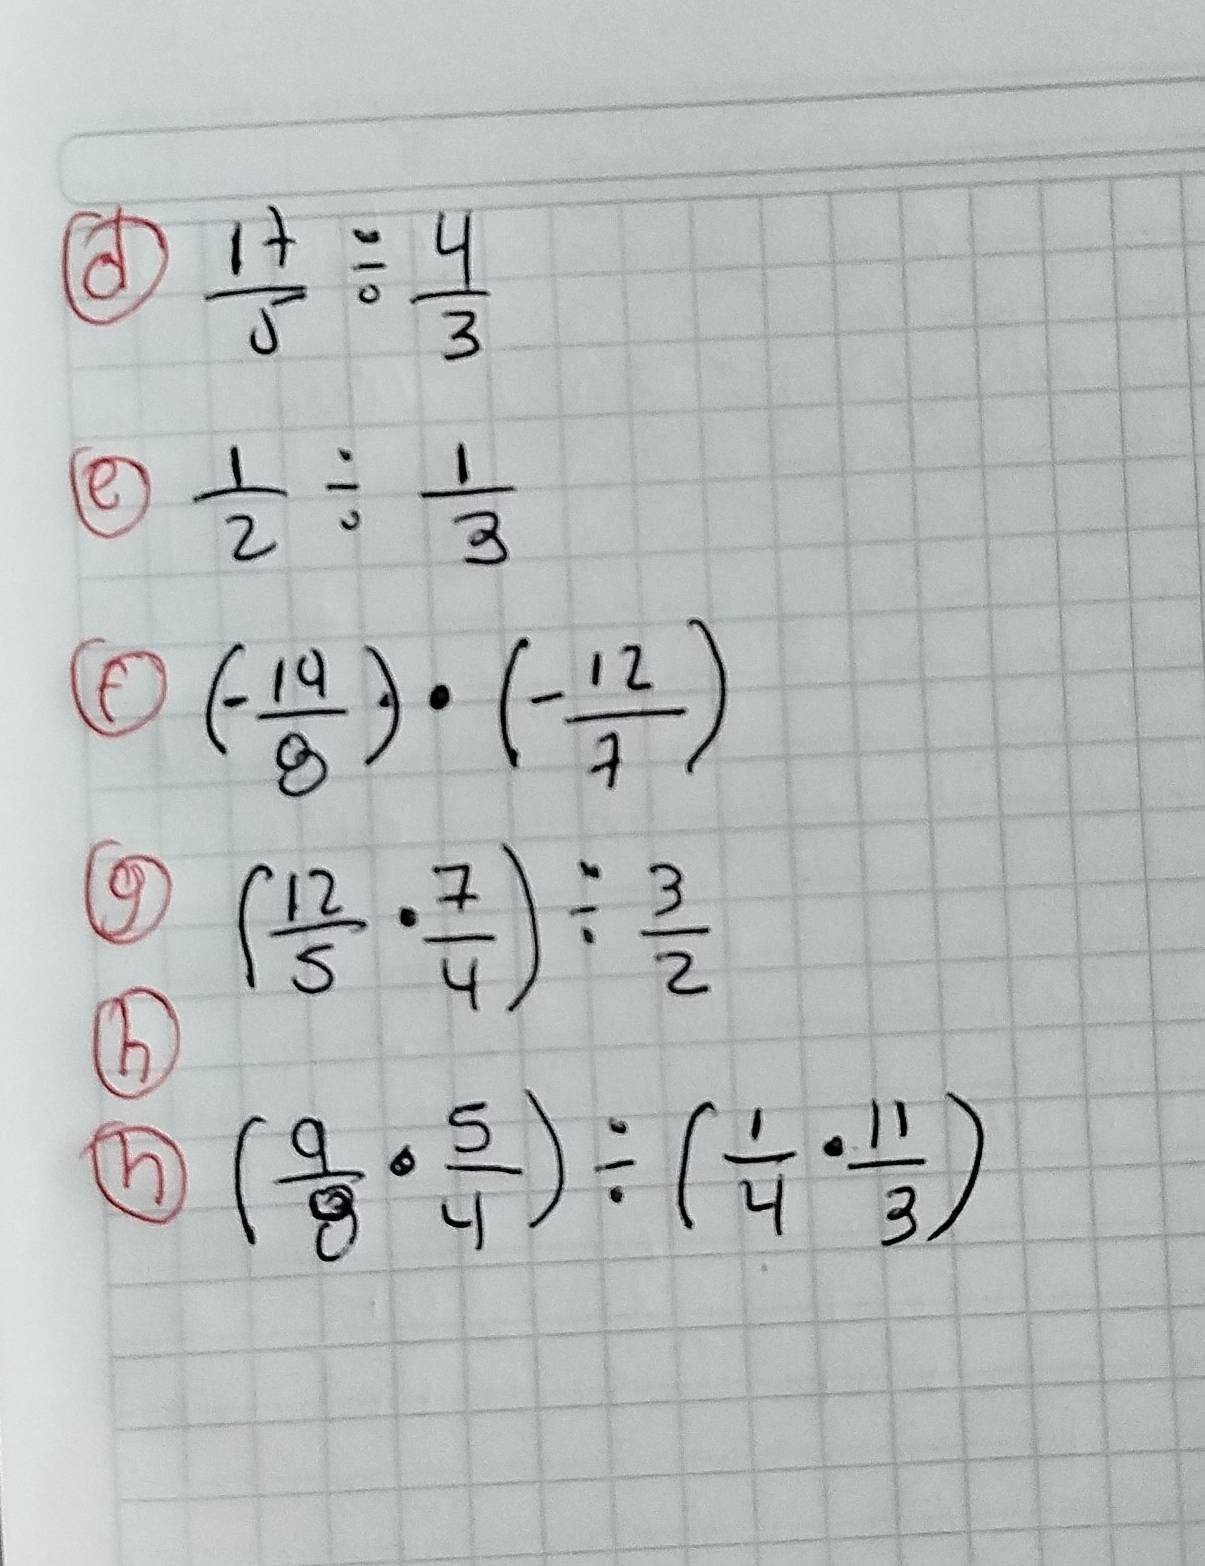 d 17/5 ÷ 4/3
e 1/2 ÷ 1/3
f (-14/8) · (-12/7)
g (12/5 · 7/4) ÷ 3/2
h
h (9/8 · 5/4) ÷ (1/4 · 11/3)